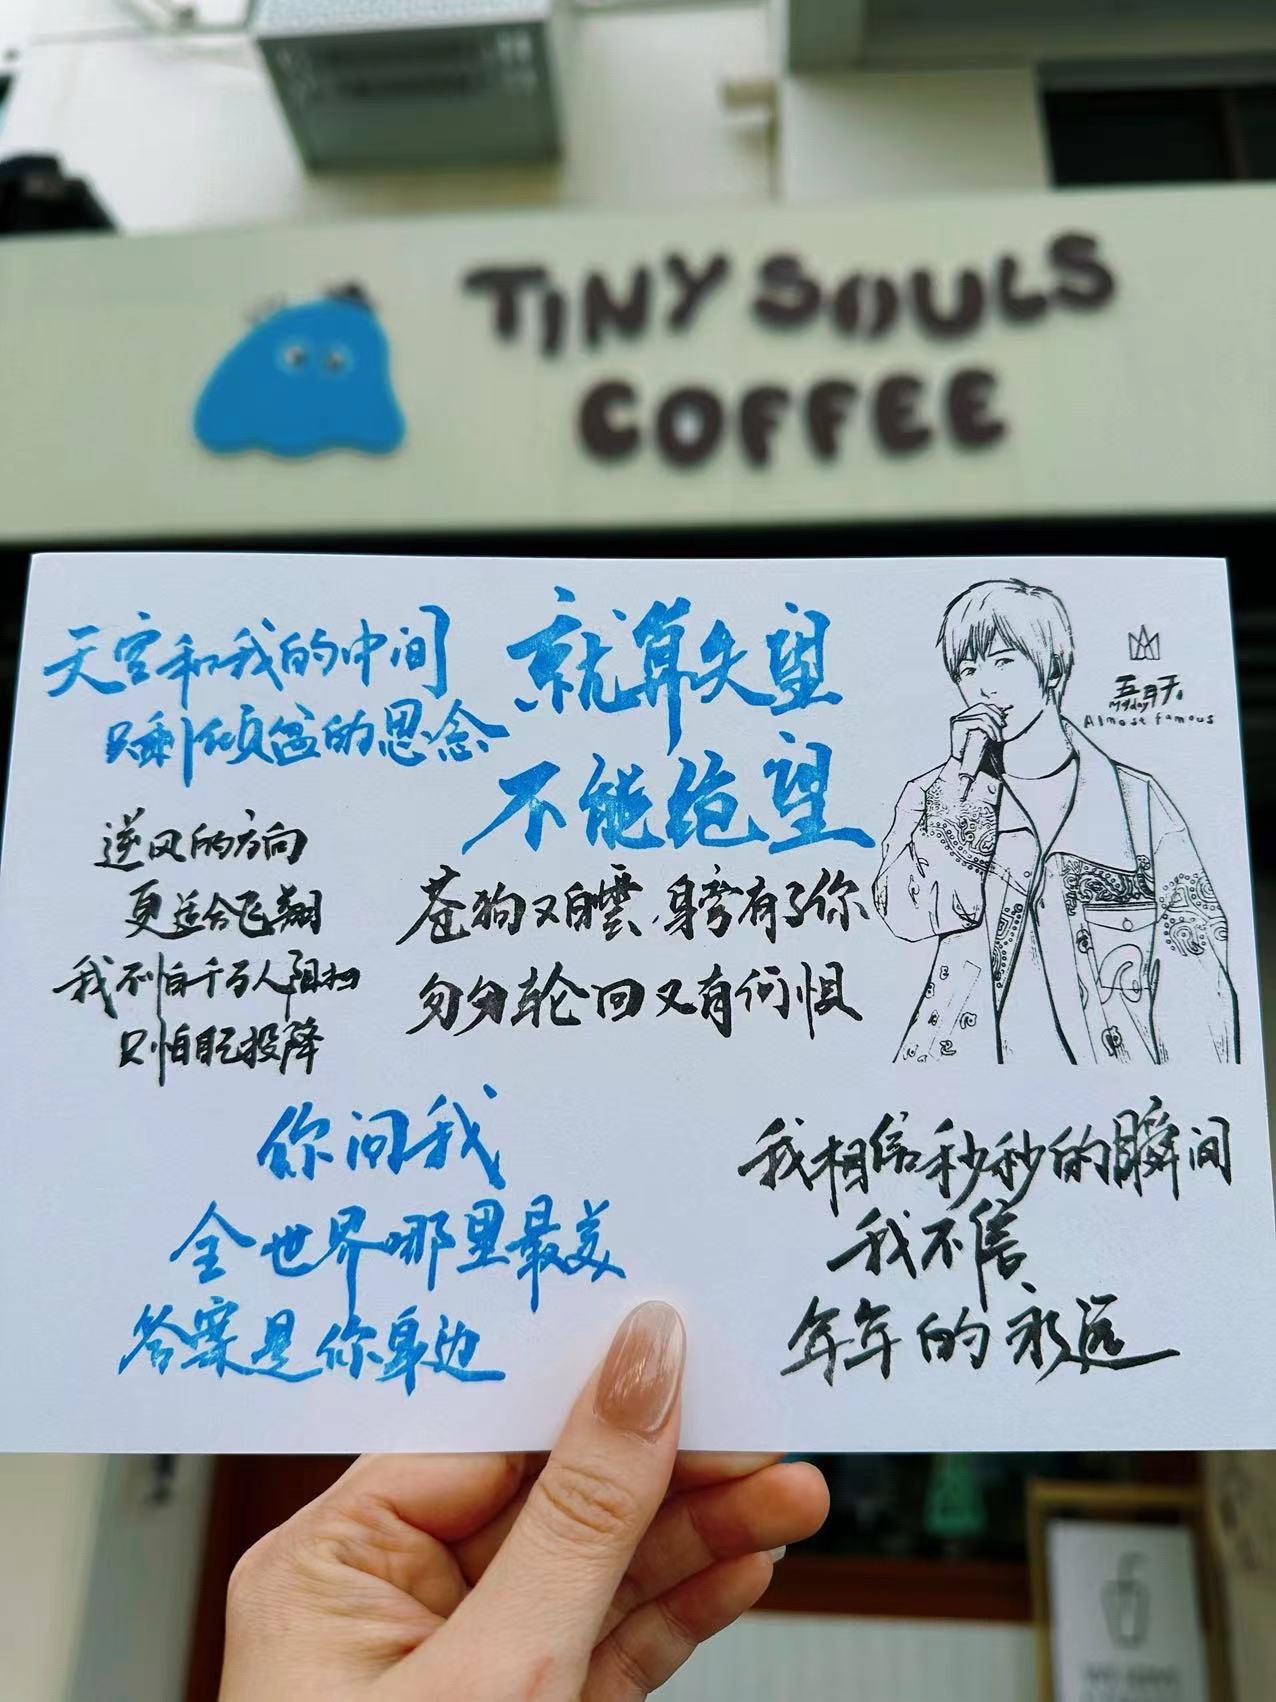 TINY SOULS
COFFEE
天空和我的中间
只剩倾盆的思念
就算失望
不能绝望
五月天
Mayday
Almost famous
逆风的方向
更适合飞翔
我不怕千万人阻挡
只怕自己投降
苍狗又白雲 身旁有了你
匆匆轮回又有何惧
你问我
全世界哪里最美
答案是你身边
我相信秒秒的瞬间
我不信
年年的永远